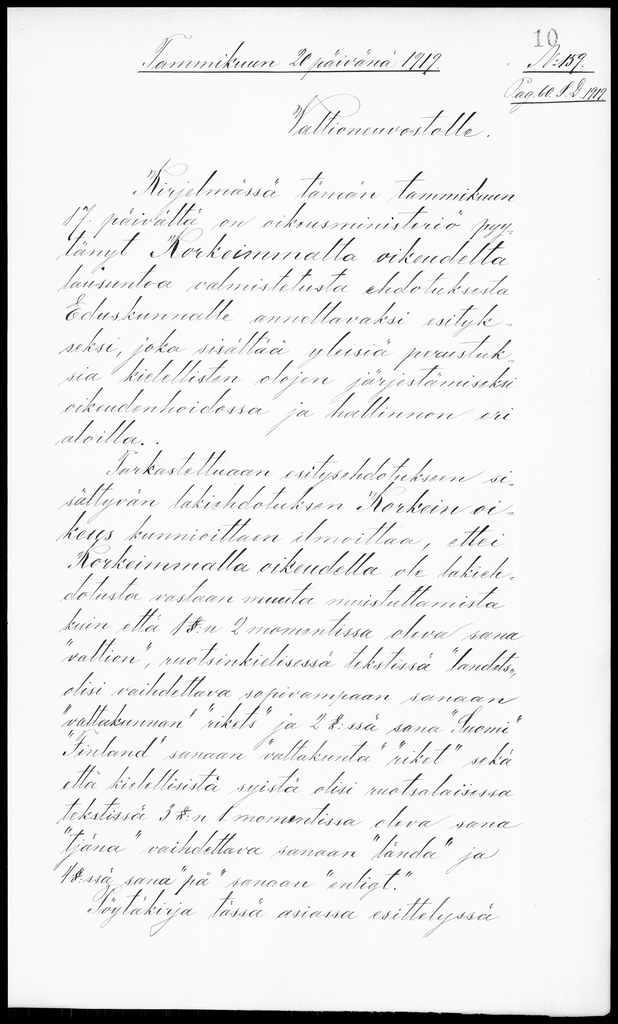 10
Tammikuun 20 päivänä 1919
N:159.
Pag. 60. S. D. 1919
Valtioneuvostolle.
Kirjelmässä tämän tammikuun
17. päivältä on oikeusministeriö pyy-
tänyt Korkeimmalta oikeudelta
lausuntoa valmistetusta ehdotuksesta
Eduskunnalle annettavaksi esityk-
seksi, joka sisältää yleisiä perustuk-
sia kielellisten olojen järjestämiseksi
oikeudenhoidossa ja hallinnon eri
aloilla.
Tarkastettuaan esitysehdotukseen si-
sältyvän lakiehdotuksen Korkein oi-
keus kunnioittaen ilmoittaa, ettei
Korkeimmalla oikeudella ole lakieh-
dotusta vastaan muuta muistuttamista
kuin että 1 §:n 2 momentissa oleva sana
"valtion", ruotsinkielisessä tekstissä "landets",
olisi vaihdettava sopivampaan sanaan
"valtakunnan" "rikets" ja 2 §:ssä sana "Suomi"
"Finland" sanaan "valtakunta" "riket" sekä
että kielellisistä syistä olisi ruotsalaisessa
tekstissä 3 §:n 1 momentissa oleva sana
"tjäna" vaihdettava sanaan "lända" ja
4 §:ssä sana "på" sanaan "enligt."
Pöytäkirja tässä asiassa esittelyssä